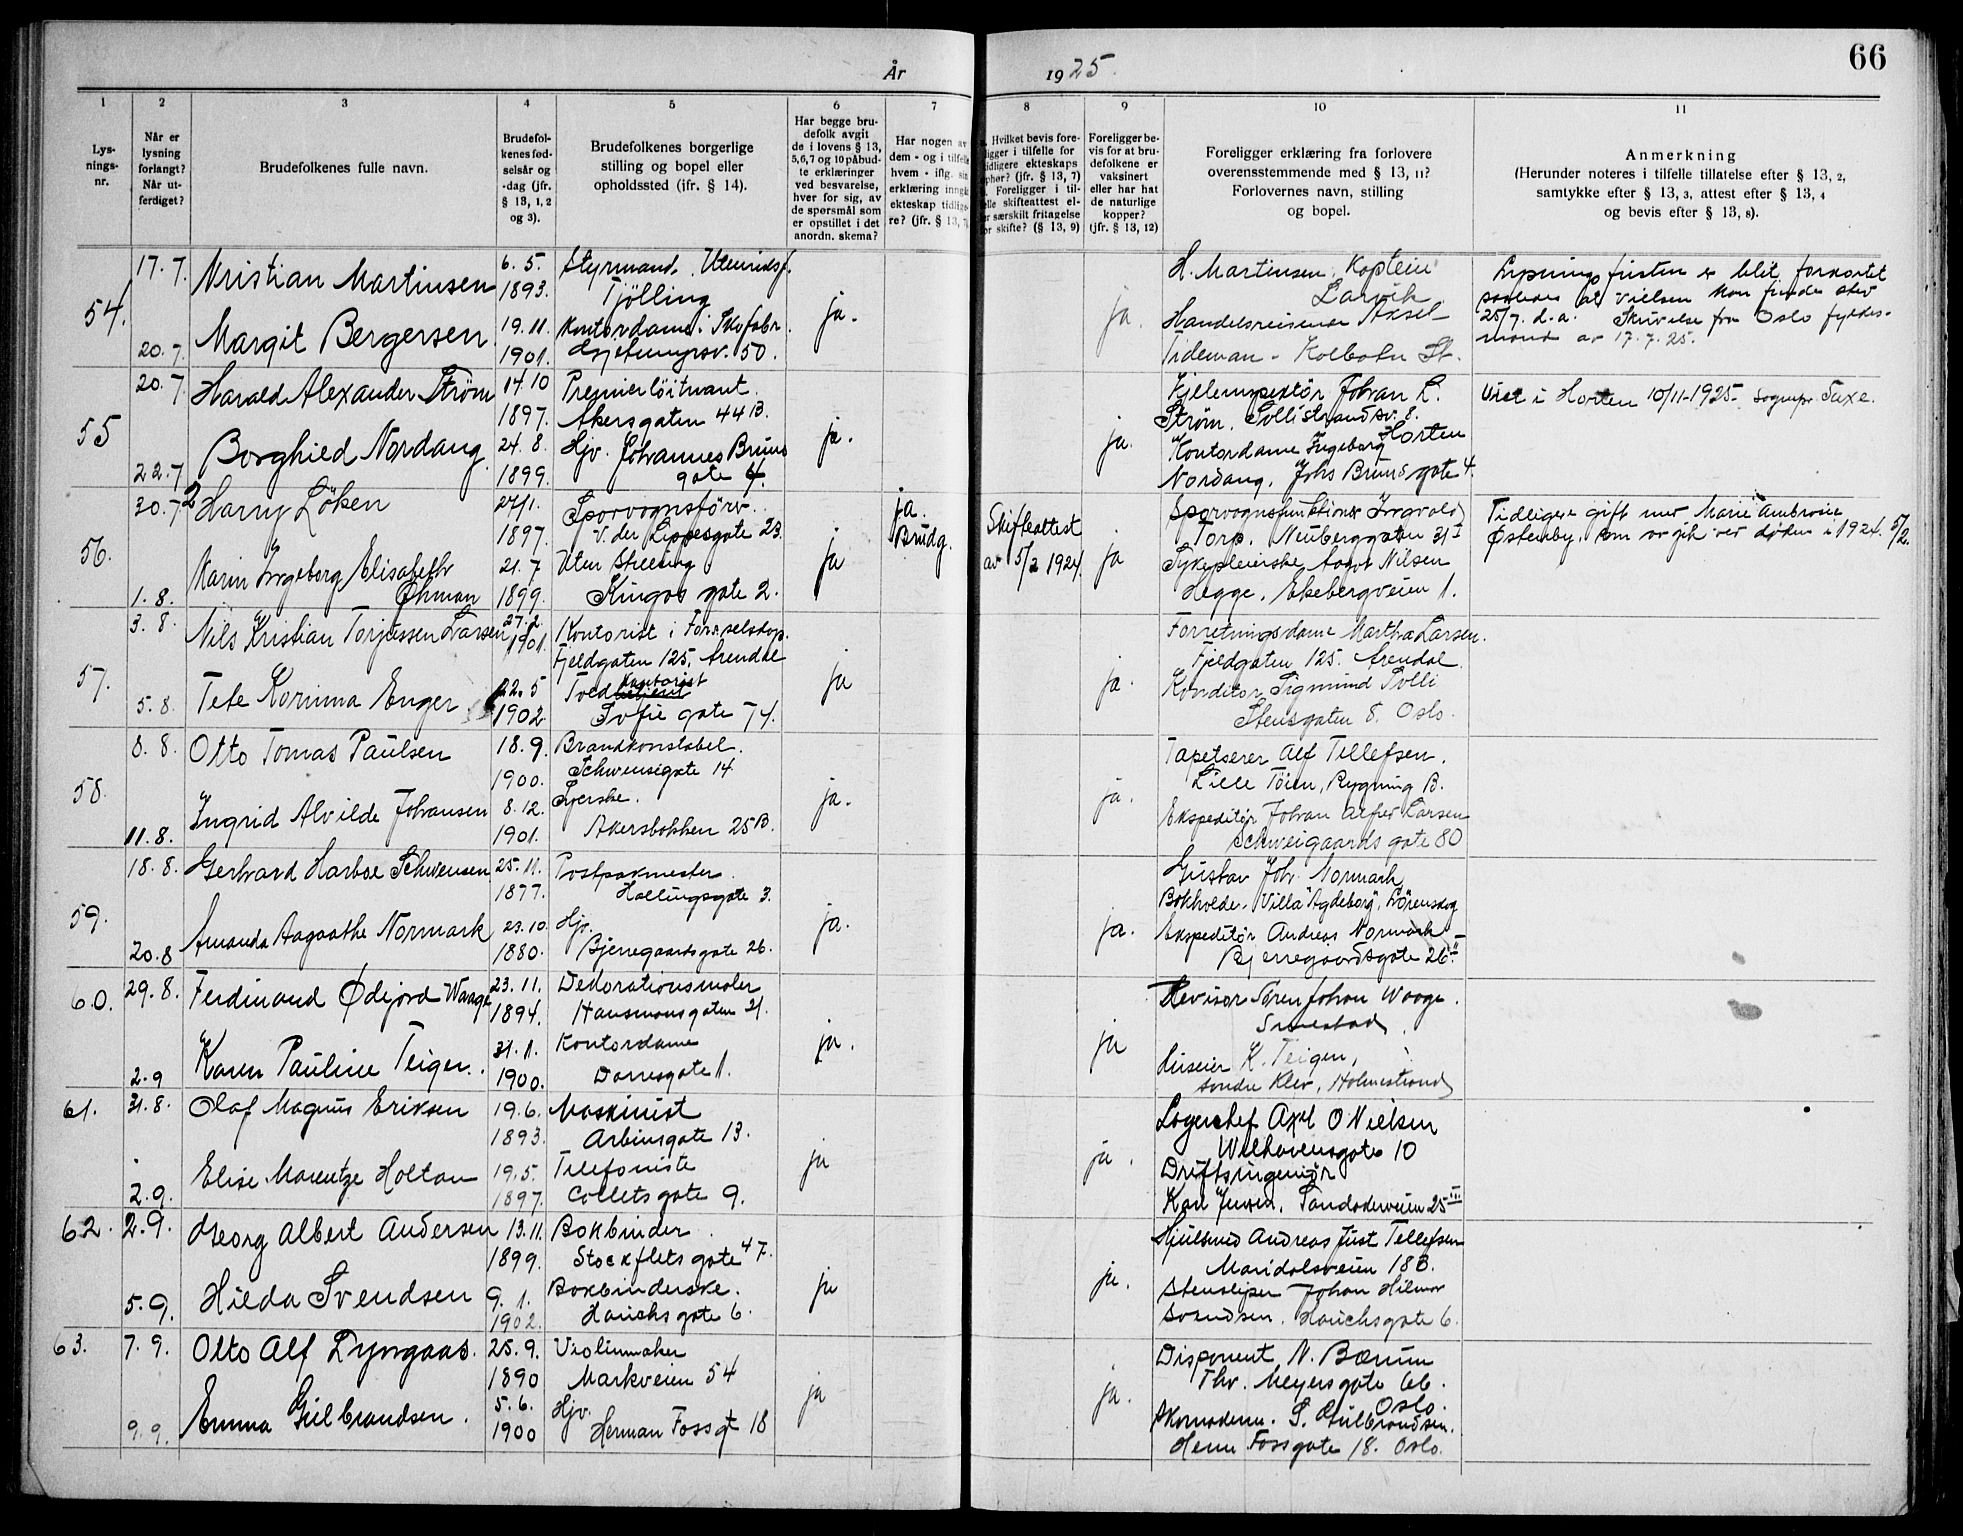 66
År 1925.
1 2 3 4 5 6 7 8 9 10 11
Lys-
nings-
nr.
Når er
lysning
forlangt?
Når ut-
ferdiget?
Brudefolkenes fulle navn.
Brudefol-
kenes fød-
selsår og
-dag (jfr.
§ 13, 1, 2
og 3).
Brudefolkenes borgerlige
stilling og bopel eller
opholdssted (jfr. § 14).
Har begge bru-
defolk avgit
de i lovens § 13,
5,6,7 og 10 påbud-
te erklæringer
ved besvarelse,
hver for sig, av
de spørsmål som
er opstillet i det
anordn. skema?
Har nogen av
dem - og i tilfelle
hvem - iflg. sin
erklæring inngå
ekteskap tidlig-
re? (jfr. § 13, 7)
Hvilket bevis fore-
ligger i tilfelle for
tidligere ekteskaps
ophør? (jfr. § 13, 7)
Foreligger i til-
felle skifteattest el-
er særskilt fritagelse
or skifte? (§ 13, 9)
Foreligger be-
vis for at bru-
defolkene er
vaksinert
eller har hat
de naturlige
kopper?
(jfr. § 13, 12)
Foreligger erklæring fra forlovere
overensstemmende med § 13, 11?
Forlovernes navn, stilling
og bopel.
Anmerkning
(Herunder noteres i tilfelle tillatelse efter § 13, 2,
samtykke efter § 13, 3, attest efter § 13, 4
og bevis efter § 13, 8).
54.
17. 7.
20. 7.
Kristian Martinsen
6. 5.
1893.
Styrmand. Utenriksf.
Tjölling
Margit Bergersen
19. 11.
1901.
Kontordame i Skofabr.
50.
ja.
ja.
H. Martinsen, Kaptein
Larvik
Handelsreisende Aksel
Tideman - Kolbotn St.
Lysningsfristen er blit forkortet
saaledes at vielsen kan finde sted
25/7. d. a. Skrivelse fra Oslo fylkes-
mand av 17. 7. 25.
55
20. 7
22. 7
Harald Alexander Strøm
14. 10
1897.
Premierløitnant.
Akersgaten 44 B.
Borghild Nordang
24. 8.
1899.
Hjv. Johannes Bruns
gate 4.
ja.
ja.
Kjelinspektør Johan L.
Strøm. Sollistrandsv. 8.
Horten
Kontordame Ingeborg
Nordang. Johs Bruns gate 4.
Viet i Horten 10/11-1925. sognepr. Saxe.
56.
30. 7
1. 8.
Harry Löken
27/1.
1897.
Sporvognsförer.
V. der Lippesgate 23.
Karin Ingeborg Elisabeth
Öhman
21. 7
1899.
Uten Stilling
Kingos gate 2.
ja
ja.
Brudg.
Skifteattest
av 5/2 1924.
ja
Sporvognsfunktionær Ingvald
Torp. Neuberggaten 31 I
Sykepleierske Aagot Nilsen
Hegge, Ekebergveien 1.
Tidligere gift med Marie Ambrosia
Østenby, som avgik ved døden i 1924. 5/2.
57.
3. 8.
5. 8.
Nils Kristian Torjussen Larsen
27. 2.
1901.
Kontorist i
Fjeldgaten 125, Arendal
Tete Korinna Enger
22. 5
1902
Told kontorist
Sofie gate 74.
ja
ja.
Forretningsdame Martha Larsen.
Fjeldgaten 125. Arendal.
Konditor Sigmund Solli
Stensgaten 8. Oslo.
58.
8. 8.
11. 8.
Otto Tomas Paulsen
18. 9.
1900.
Brandkonstabel.
Schwensgate 14
Ingrid Alvilde Johansen
8. 12.
1901.
Syerske.
Akersbakken 25 B.
ja.
ja.
Tapetserer Alf Tellefsen.
Lille Töien, Bygning B.
Ekspeditör Johan Alfred Larsen
Schweigaards gate 80
59.
18. 8.
20. 8
Gerhard Harboe Schwensen
25. 11.
1877.
Postpakmester.
Hallingsgate 3.
Amanda Aagaathe Normark
23. 10.
1880.
Hjv.
Bjerregaardsgate 26.
ja.
ja.
Gustav Joh. Normark
Bokholder. Villa "Agdeborg", Lörenskog
Ekspeditör Andreas Normark
Bjerregaardsgate 26 II.
60.
29. 8.
2. 9
Ferdinand Ødejord Waage
23. 11.
1894.
Dekorationsmaler
Hausmansgaten 31.
Karen Pauline Teigen.
31. 1.
1900.
Kontordame
Darresgate 1.
ja.
ja
Revisor Sören Johan Waage.
Smestad.
Huseier K. Teigen,
søndre Klev, Holmestrand
61.
31. 8.
2. 9.
Olaf Magnus Eriksen
19. 6.
1893.
Maskinist
Arbinsgate 13.
Elise Marentze Holtan
19. 5.
1897.
Telefoniste
Collets gate 9.
ja
ja.
Lagerchef Axel O Nielsen
Welhavensgate 10
Driftsingeniør
Karl Jensen. Sandakerveien 25 III
62.
2. 9.
5. 9.
Georg Albert Andersen
13. 11.
1899.
Bokbinder.
Stockflets gate 47.
Hilda Svendsen
9. 1.
1902.
Bokbinderske.
Hauchs gate 6.
ja
ja.
Hjulsmed Andreas Just Tellefsen
Maridalsveien 18 B.
Stensliper Johan Hilmar
Svendsen. Hauchsgate 6.
63.
7. 9.
9. 9.
Otto Alf Lyngaas.
25. 9.
1890
Violinmaker
Markveien 54
Emma Gulbrandsen.
5. 6.
1900
Hjv.
Herman Foss gt 18
ja
ja.
Disponent N. Bærum
Thv. Meyersgate 66.
Oslo.
Skomakerm. S. Gulbrandsen.
Herm. Fossgate 18. Oslo.